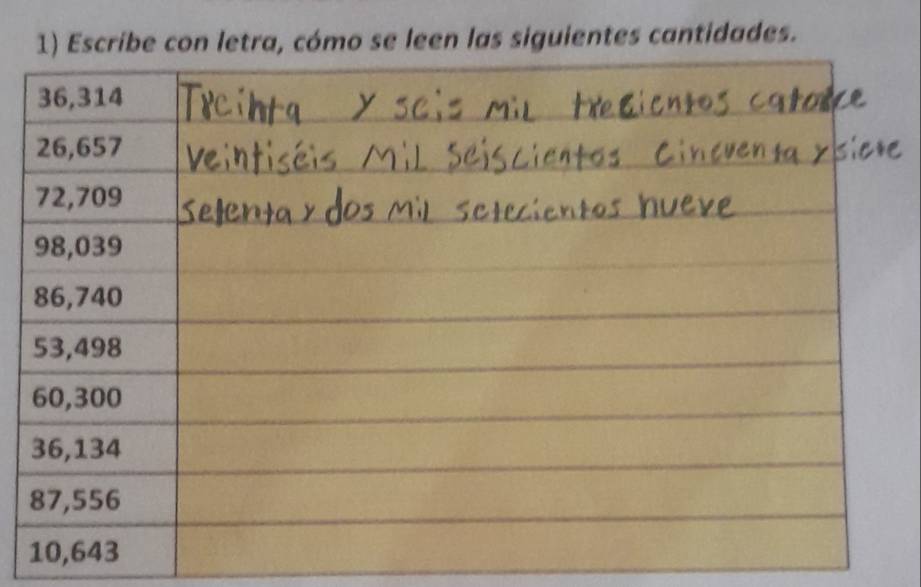 1) Escribe con letra, cómo se leen las siguientes cantidades.
36,314 Treinta y seis mil trecientos catorce
26,657 veintiséis mil seiscientos cincuenta y siete
72,709 setenta y dos mil setecientos nueve
98,039
86,740
53,498
60,300
36,134
87,556
10,643